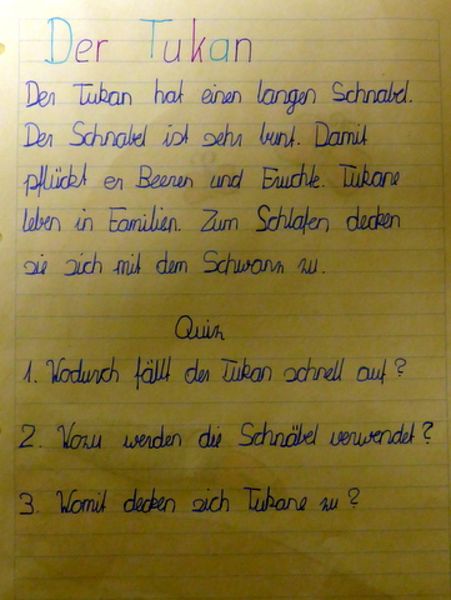 Der Tukan
Der Tukan hat einen langen Schnabel.
Der Schnabel ist sehr bunt. Damit
pflückt er Beeren und Fruchte. Tukane
leben in Familien. Zum Schlafen decken
sie sich mit dem Schwanz zu.
Quiz
1. Wodurch fällt der Tukan schnell auf?
2. Wozu werden die Schnäbel verwendet?
3. Womit decken sich Tukane zu?